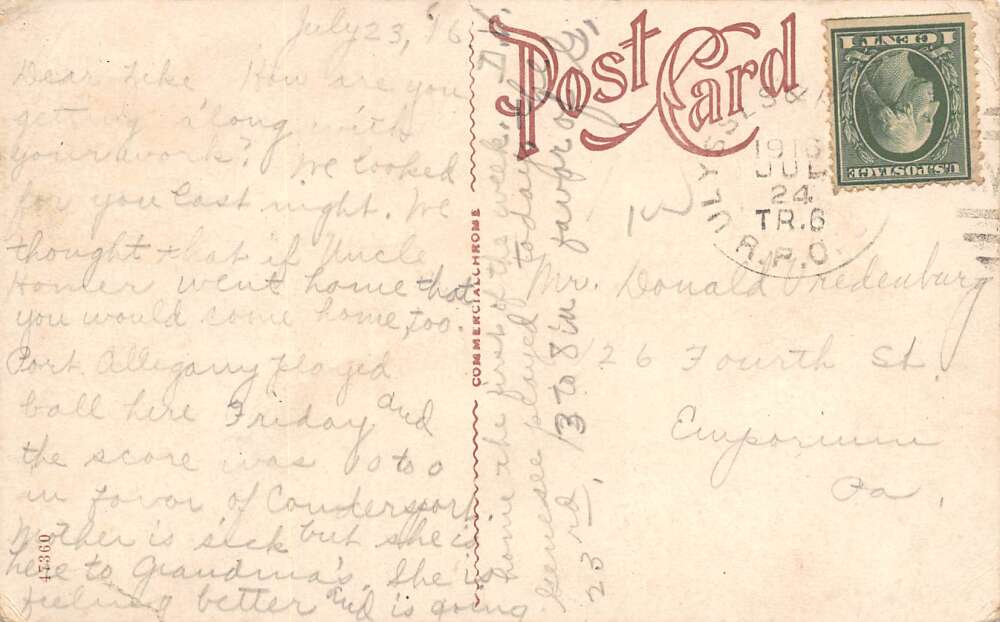 July 23, '16
Dear Like How are you
getting along with
your work? We looked
for you last night. We
thought that if Uncle
Homer went home that
you would come home, too.
Port Allegany played
ball here Friday and
the score was 10 to 0
in favor of Coudersport.
Mother is sick but she is
here to Grandma's. She is
feeling better and is going
home the first of the week.
Genesee played today the
23rd, 13 to 8 in favor of
Post Card
COMMERCIALCHROME
47360
ULYSSES &
1916
JUL
24
TR.6
R.P.O.
1 CENT 1
U.S. POSTAGE
Mr. Donald Vredenburg
126 Fourth St.
Emporium
Pa.